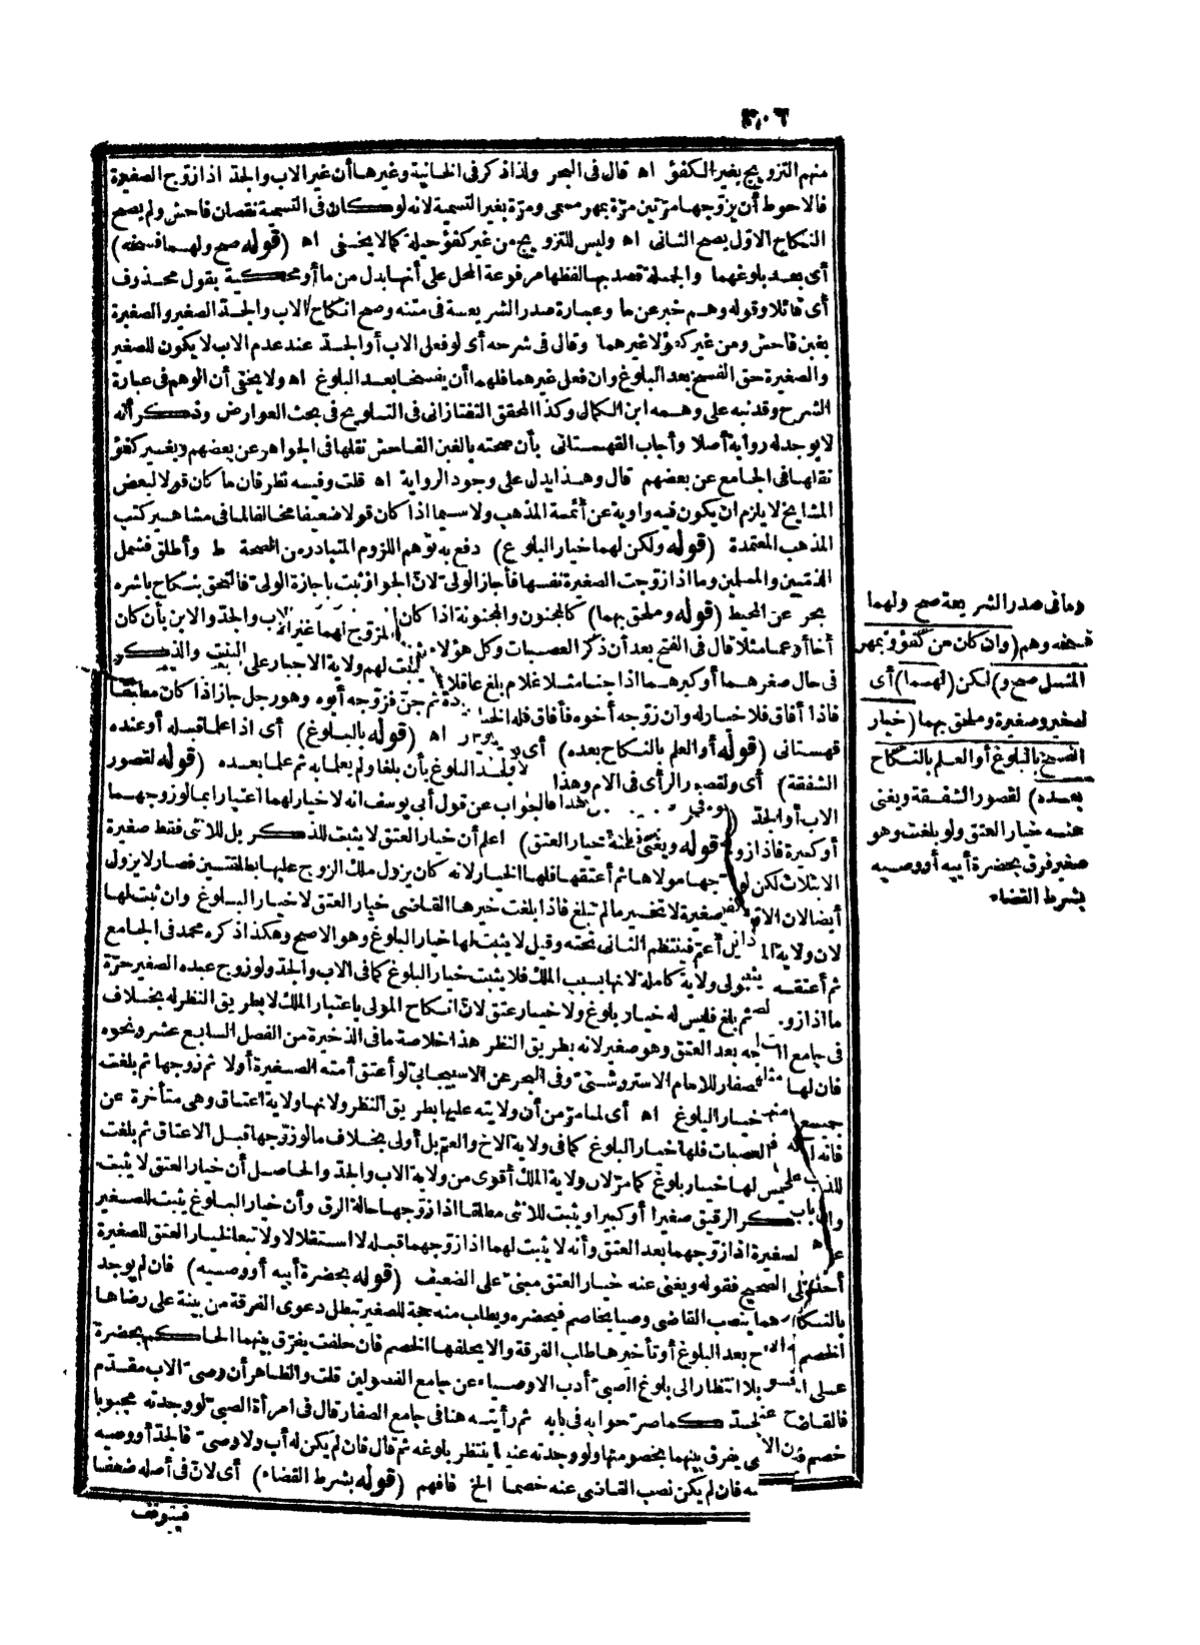 ٣٠٦
منهم التزويج بغير الكفؤ اه قال فى البحر ولذا ذكر فى الخانية وغيرها أن غير الاب والجد اذا زوج الصغيرة
فالاحوط أن يزوجها مرتين مرة بمهر مسمى ومرة بغير التسمية لانه لو كان فى التسمية نقصان فاحش ولم يصح
النكاح الاول يصح الثانى اه وليس للتزويج من غير كفؤ حيلة كما لا يخفى اه (قوله صح ولهما فسخه)
أى بعد بلوغهما والجملة قصد بها لفظها مرفوعة المحل على أنها بدل من ما أو محكية بقول محذوف
أى قائلا وقوله وهم خبر عن ما وعبارة صدر الشريعة فى متنه وصح انكاح الاب والجد الصغير والصغيرة
بغبن فاحش ومن غير كفؤ لا غيرهما وقال فى شرحه أى لو فعل الاب أو الجد عند عدم الاب لا يكون للصغير
والصغيرة حق الفسخ بعد البلوغ وان فعل غيرهما فلهما أن يفسخا بعد البلوغ اه ولا يخفى أن الوهم فى عبارة
الشرح وقد نبه على وهمه ابن الكمال وكذا المحقق التفتازانى فى التلويح فى بحث العوارض وذكر أنه
لا يوجد له رواية أصلا وأجاب القهستانى بأن صحته بالغبن الفاحش نقلها فى الجواهر عن بعضهم وبغير كفؤ
نقلها فى الجامع عن بعضهم قال وهذا يدل على وجود الرواية اه قلت وفيه نظر فان ما كان قولا لبعض
المشايخ لا يلزم ان يكون فيه رواية عن أئمة المذهب ولا سيما اذا كان قولا ضعيفا مخالفا لما فى مشاهير كتب
المذهب المعتمدة (قوله ولكن لهما خيار البلوغ) دفع به توهم اللزوم المتبادر من الصحة ط وأطلق فشمل
الذميين والمسلمين وما اذا زوجت الصغيرة نفسها فأجاز الولى لان الجواز ثبت باجازة الولى فالتحق بنكاح باشره
بحر عن المحيط (قوله وملحق بهما) كالمجنون والمجنونة اذا كان المزوج لهما غير الاب والجد والابن بأن كان
أخا أو عما مثلا قال فى الفتح بعد أن ذكر العصبات وكل هؤلاء يثبت لهم ولاية الاجبار على البنت والذكر
فى حال صغرهما أو كبرهما اذا جنا مثلا غلام بلغ عاقلا ثم جن فزوجه أبوه وهو رجل جاز اذا كان مطبقا
فاذا أفاق فلا خيار له وان زوجه أخوه فأفاق فله الخيار اه (قوله بالبلوغ) أى اذا علما قبله أو عنده
قهستانى (قوله أو العلم بالنكاح بعده) أى بعد البلوغ بأن بلغا ولم يعلما به ثم علما بعده (قوله لقصور
الشفقة) أى ولقصور الرأى فى الام وهذا الجواب عن قول أبى يوسف انه لا خيار لهما اعتبارا بما لو زوجهما
الاب أو الجد (قوله ويغنى عنه خيار العتق) اعلم أن خيار العتق لا يثبت للذكر بل للانثى فقط صغيرة
أو كبيرة فاذا زوجها مولاها ثم أعتقها فلها الخيار لانه كان يزول ملك الزوج عليها بطلقتين فصار لا يزول
الا بثلاث لكن لو صغيرة لا تخير ما لم تبلغ فاذا بلغت خيرها القاضى خيار العتق لا خيار البلوغ وان ثبت لها
أيضا لان الاول أعم فينتظم الثانى تحته وقيل لا يثبت لها خيار البلوغ وهو الاصح وهكذا ذكره محمد فى الجامع
لان ولاية المولى ولاية كاملة لانها بسبب الملك فلا يثبت خيار البلوغ كما فى الاب والجد ولو زوج عبده الصغير حرة
ثم أعتقه ثم بلغ فليس له خيار بلوغ ولا خيار عتق لان انكاح المولى باعتبار الملك لا بطريق النظر له بخلاف
ما اذا زوجه بعد العتق وهو صغير لانه بطريق النظر هذا خلاصة ما فى الذخيرة من الفصل السابع عشر ونحوه
فى جامع الصغار للامام الاستروشنى وفى البحر عن الاسبيجابى لو أعتق أمته الصغيرة أولا ثم زوجها ثم بلغت
فان لها خيار البلوغ اه أى لما مر من أن ولايته عليها بطريق النظر ولانها ولاية اعتاق وهى متأخرة عن
جميع العصبات فلها خيار البلوغ كما فى ولاية الاخ والعم بل أولى بخلاف ما لو زوجها قبل الاعتاق ثم بلغت
فانه ليس لها خيار بلوغ كما مر لان ولاية الملك أقوى من ولاية الاب والجد والحاصل أن خيار العتق لا يثبت
للذكر الرقيق صغيرا أو كبيرا ويثبت للانثى مطلقا اذا زوجها حالة الرق وأن خيار البلوغ يثبت للصغير
والصغيرة اذا زوجهما بعد العتق وأنه لا يثبت لهما اذا زوجهما قبله لا استقلالا ولا تبعا لخيار العتق للصغيرة
على الصحيح فقوله ويغنى عنه خيار العتق مبنى على الضعيف (قوله بحضرة أبيه أو وصيه) فان لم يوجد
أحدهما ينصب القاضى وصيا يخاصم فيحضره ويطلب منه حجة للصغير تبطل دعوى الفرقة من بينة على رضاها
بالنكاح بعد البلوغ أو تأخيرها طلب الفرقة والا يحلفها الخصم فان حلفت يفرق بينهما الحاكم بحضرة
الخصم بلا انتظار الى بلوغ الصبى أدب الاوصياء عن جامع الفصولين قلت والظاهر أن وصى الاب مقدم
على الجد كما صرحوا به فى بابه ثم رأيته هنا فى جامع الصغار قال فى امرأة الصبى لو وجدته مجبوبا
فالقاضى يفرق بينهما بخصومتها ولو وجدته عنينا ينتظر بلوغه ثم قال فان لم يكن له أب ولا وصى فالجد أو وصيه
خصم فيه فان لم يكن نصب القاضى عنه خصما الخ فافهم (قوله بشرط القضاء) أى لان فى أصله ضعفا
فيتوقف
وما فى صدر الشريعة صح ولهما
فسخه وهم (وان كان من كفؤ وبمهر
المثل صح و) لكن (لهما) أى
لصغير وصغيرة وملحق بهما (خيار
الفسخ بالبلوغ أو العلم بالنكاح
بعده) لقصور الشفقة ويغنى
عنه خيار العتق ولو بلغت وهو
صغير فرق بحضرة أبيه أو وصيه
بشرط القضاء